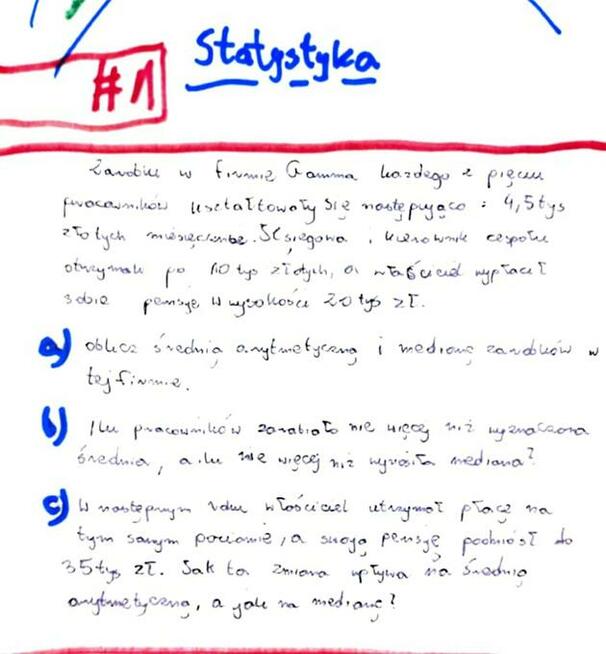 Statystyka
#1
Zarobki w firmie Gamma każdego z pięciu
pracowników kształtowały się następująco : 4,5 tys
złotych miesięcznie. Księgowa i kierownik zespołu
otrzymali po 10 tys złotych, a właściciel wypłacał
sobie pensję w wysokości 20 tys zł.
a) oblicz średnią arytmetyczną i medianę zarobków w
tej firmie.
b) Ilu pracowników zarabiało nie więcej niż wyznaczona
średnia, a ilu nie więcej niż wynosiła mediana?
c) W następnym roku właściciel utrzymał płacę na
tym samym poziomie, a swoją pensję podniósł do
35 tys zł. Jak ta zmiana wpływa na średnią
arytmetyczną, a jak na medianę?